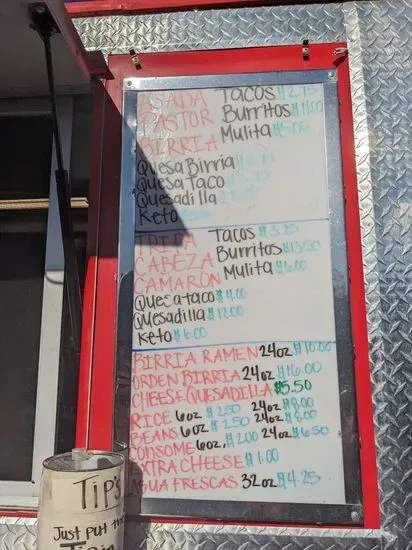 ASADA Tacos $2.75
PASTOR Burritos $11.00
BIRRIA Mulita $5.00
QuesaBirria
Quesa Taco
Quesadilla
Keto
TRIPA Tacos $3.25
CABEZA Burritos $13.50
CAMARÓN Mulita $6.00
Quesataco $4.00
Quesadilla $12.00
Keto $6.00
BIRRIA RAMEN 24oz $16.00
ORDEN BIRRIA 24oz $16.00
CHEESE QUESADILLA $5.50
RICE 6oz $2.50 24oz $8.00
BEANS 6oz $2.50 24oz $8.00
CONSOME 6oz, $2.00 24oz $6.50
EXTRA CHEESE $1.00
AGUA FRESCAS 32oz $4.25
TIP's
Just put the